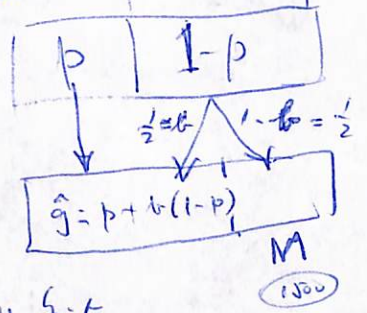 p 1-p
1/2 = b 1-b = 1/2
ĝ = p + b(1-p)
M
1500